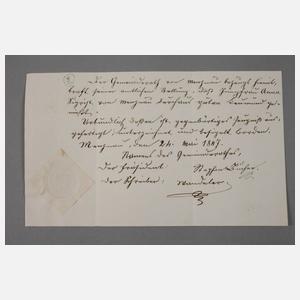 Der Gemeinderath von Menznau bezeugt hiemit,
kraft seiner amtlichen Stellung, daß Jungfrau Anna
von Menznau durchaus guten Leumund
Urkundlich dessen ist gegenwärtiges Zeugniß
unterzeichnet und besiegelt worden.
Menznau, den 24. Mai 1887.
Namens des Gemeinderathes,
Der Präsident
Der Schreiber: